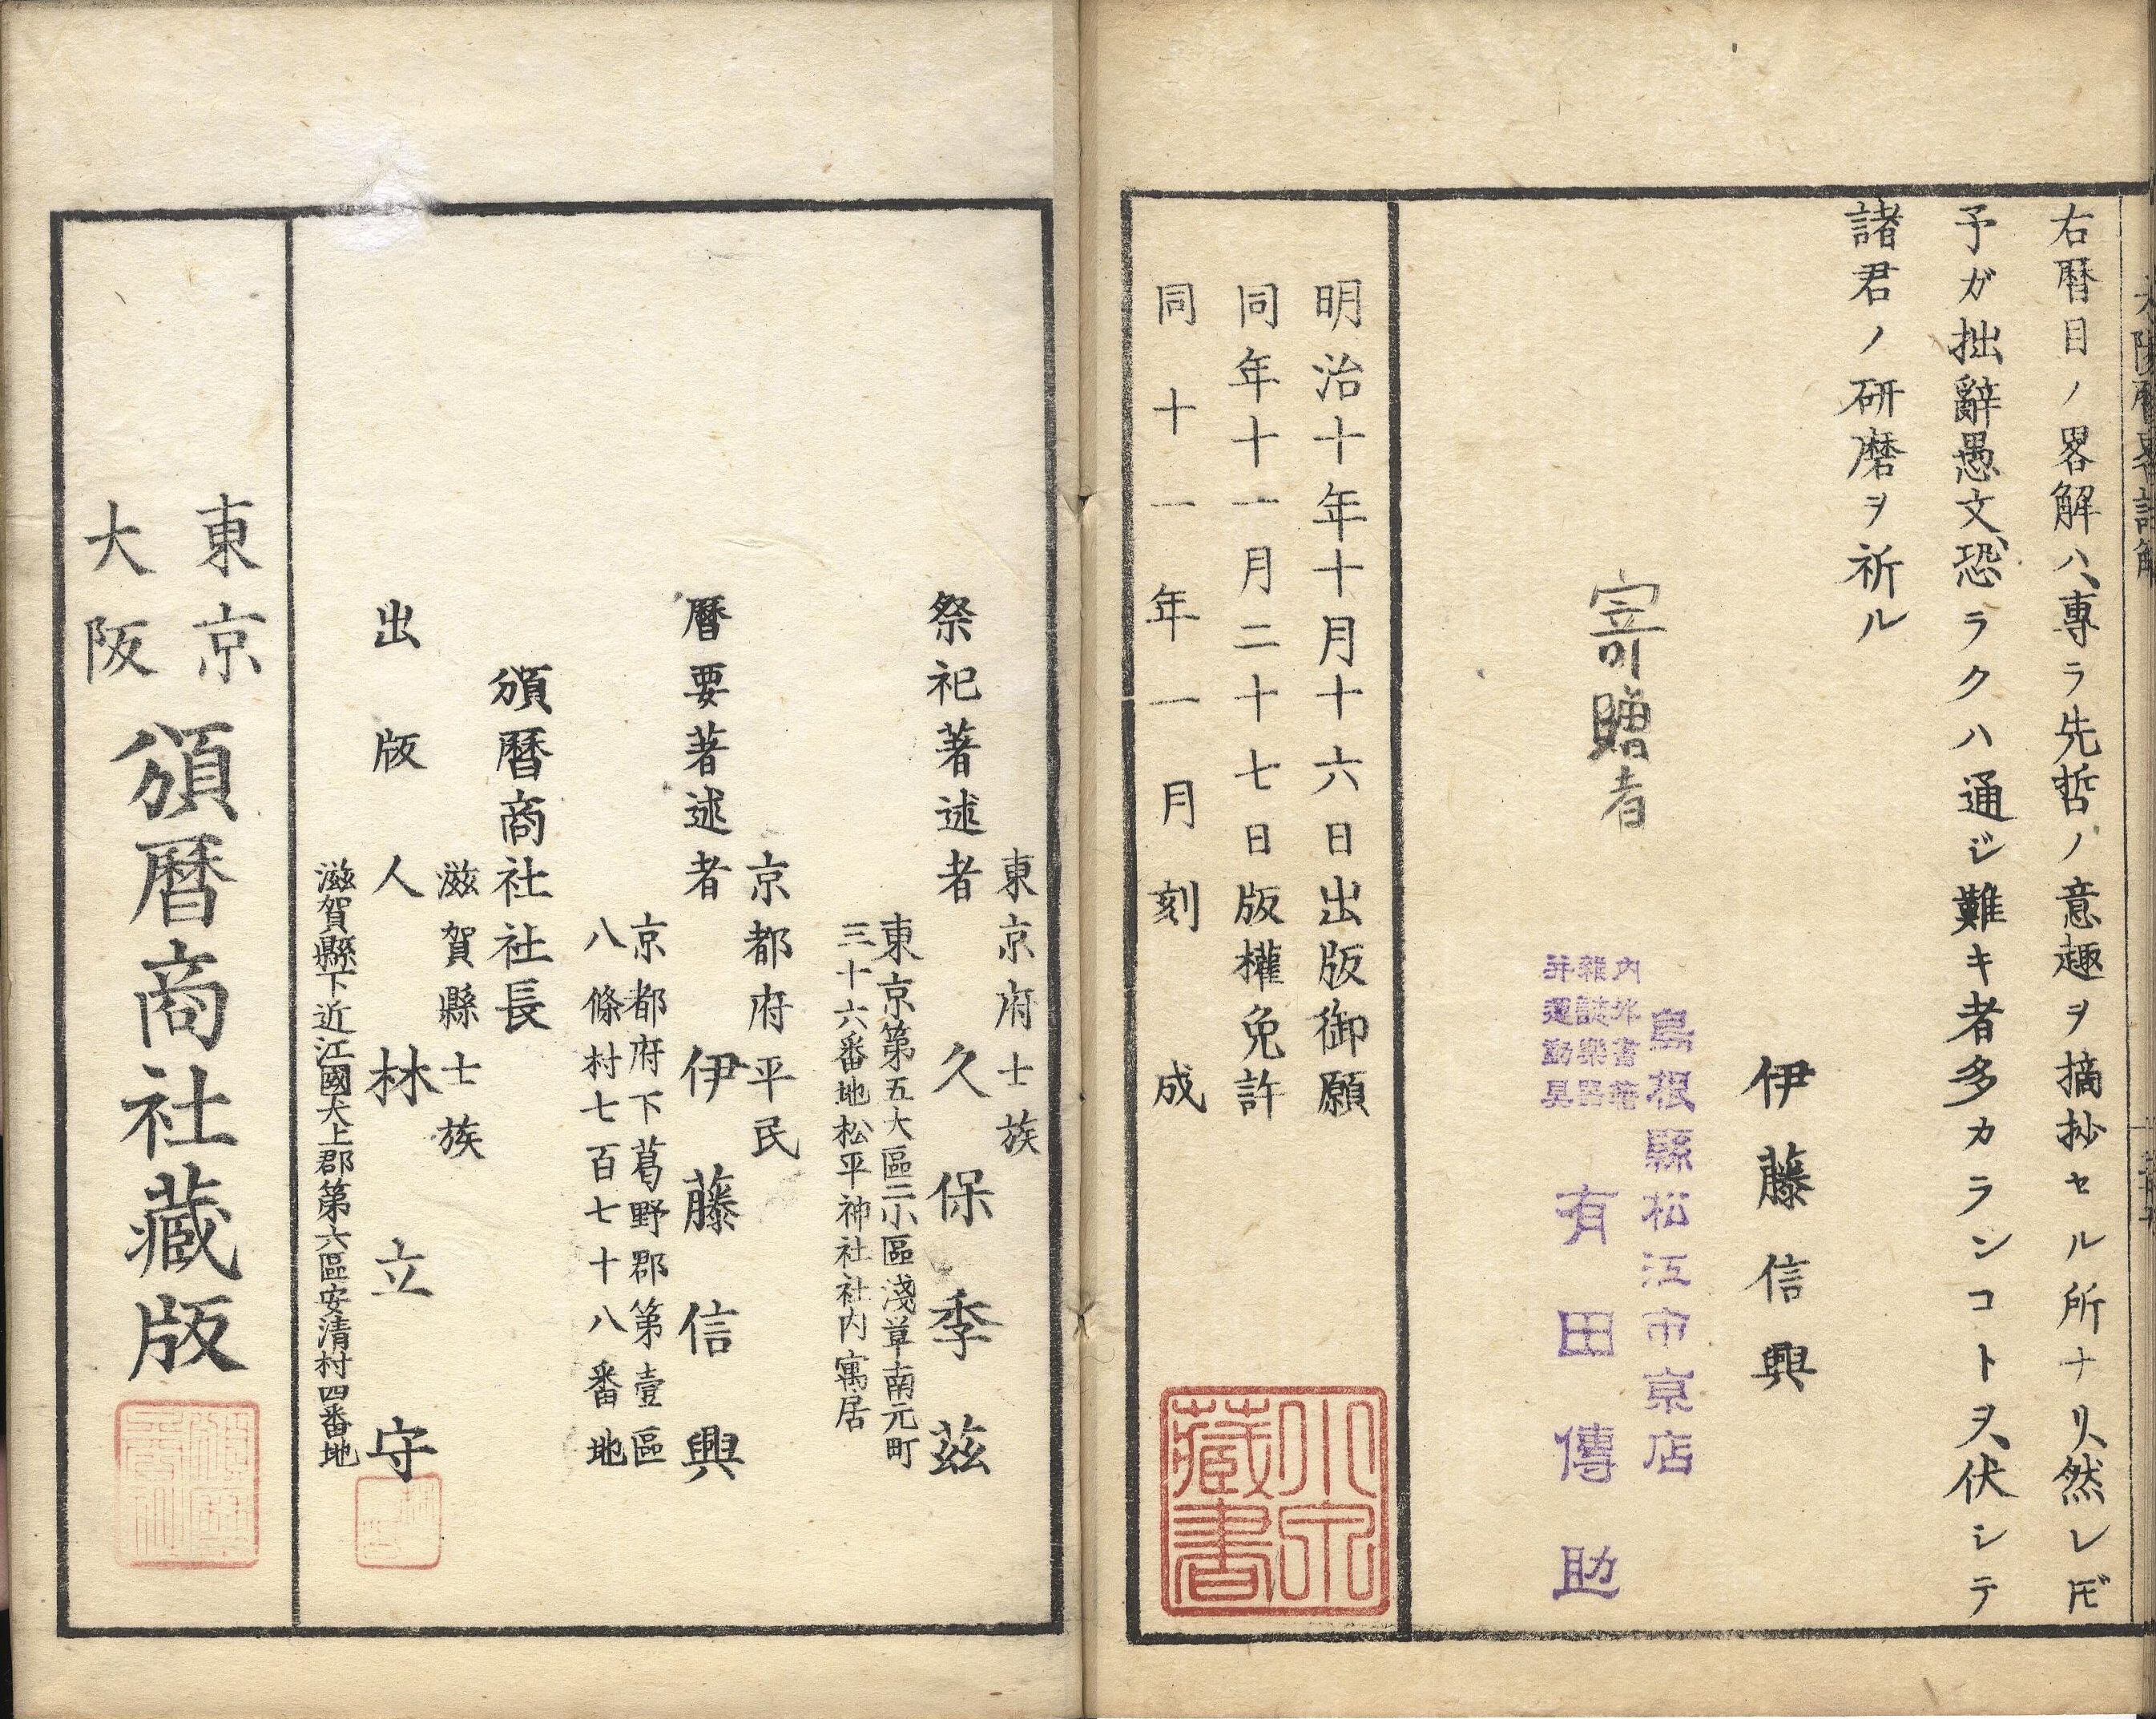 右暦目ノ畧解ハ專ラ先哲ノ意趣ヲ摘抄セル所ナリ然レㄷ゙
予ガ拙辭愚文恐ラクハ通ジ難キ者多カランコトヲ伏シテ
諸君ノ研磨ヲ祈ル
伊藤信興
寄贈者
島根縣松江市京店
内外書籍
雜誌樂器
并運動具
有田傳助
明治十年十月十六日出版御願
同年十一月二十七日版權免許
同十一年一月刻成
藏書
東京府士族
祭祀著述者 久保季茲
東京第五大區二小區淺草南元町
三十六番地松平神社社内寓居
京都府平民
暦要著述者 伊藤信興
京都府下葛野郡第壹區
八條村七百七十八番地
頒暦商社社長
滋賀縣士族
出版人 林立守
滋賀縣下近江國犬上郡第六區安清村四番地
東京
大阪
頒暦商社藏版